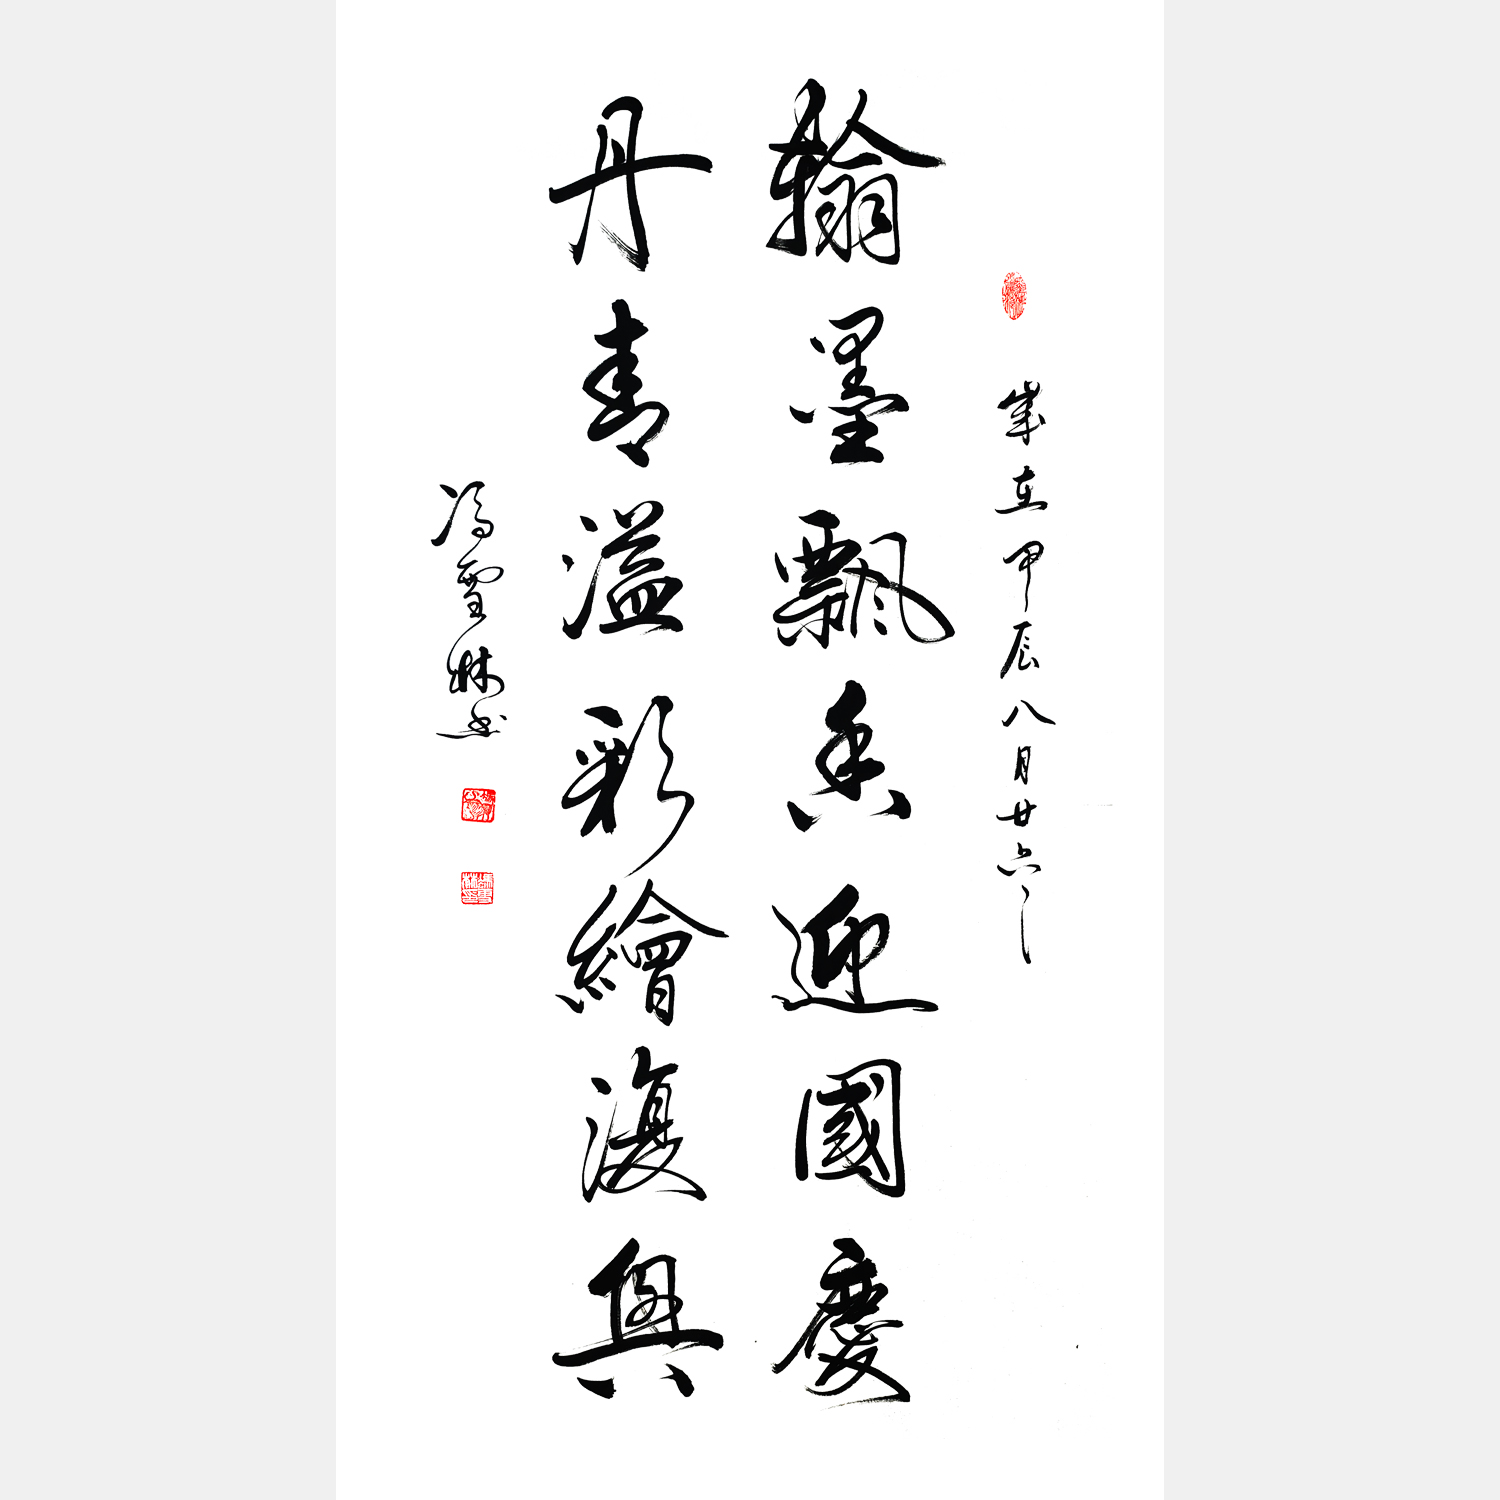 歲在甲辰八月廿六
翰墨飄香迎國慶
丹青溢彩繪復興
馮林書